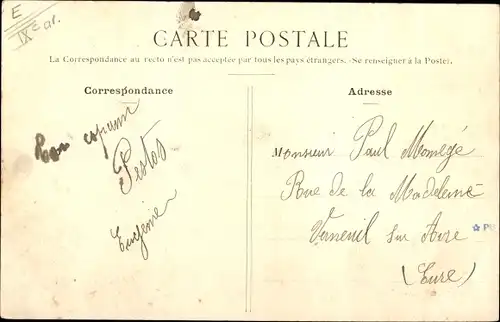 E
IXe
CARTE POSTALE
La Correspondance au recto n'est pas acceptée par tous les pays étrangers. -Se renseigner à la Poster.
Correspondance
Eugénie
Adresse
Monsieur Paul
Rue de la Madeleine
Verneuil sur Avre
(Eure)